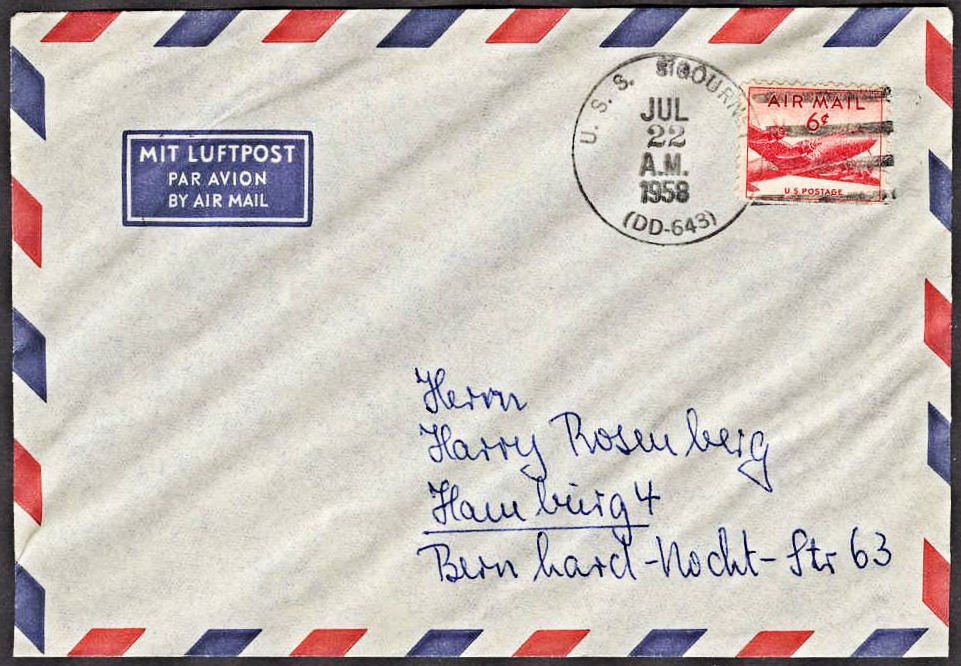 MIT LUFTPOST
PAR AVION
BY AIR MAIL
U. S. S. SIGOURN
JUL
22
A.M.
1958
(DD-643)
AIR MAIL
6¢
U.S. POSTAGE
Herrn
Harry Rosenberg
Hamburg 4
Bernhard-Nocht-Str 63